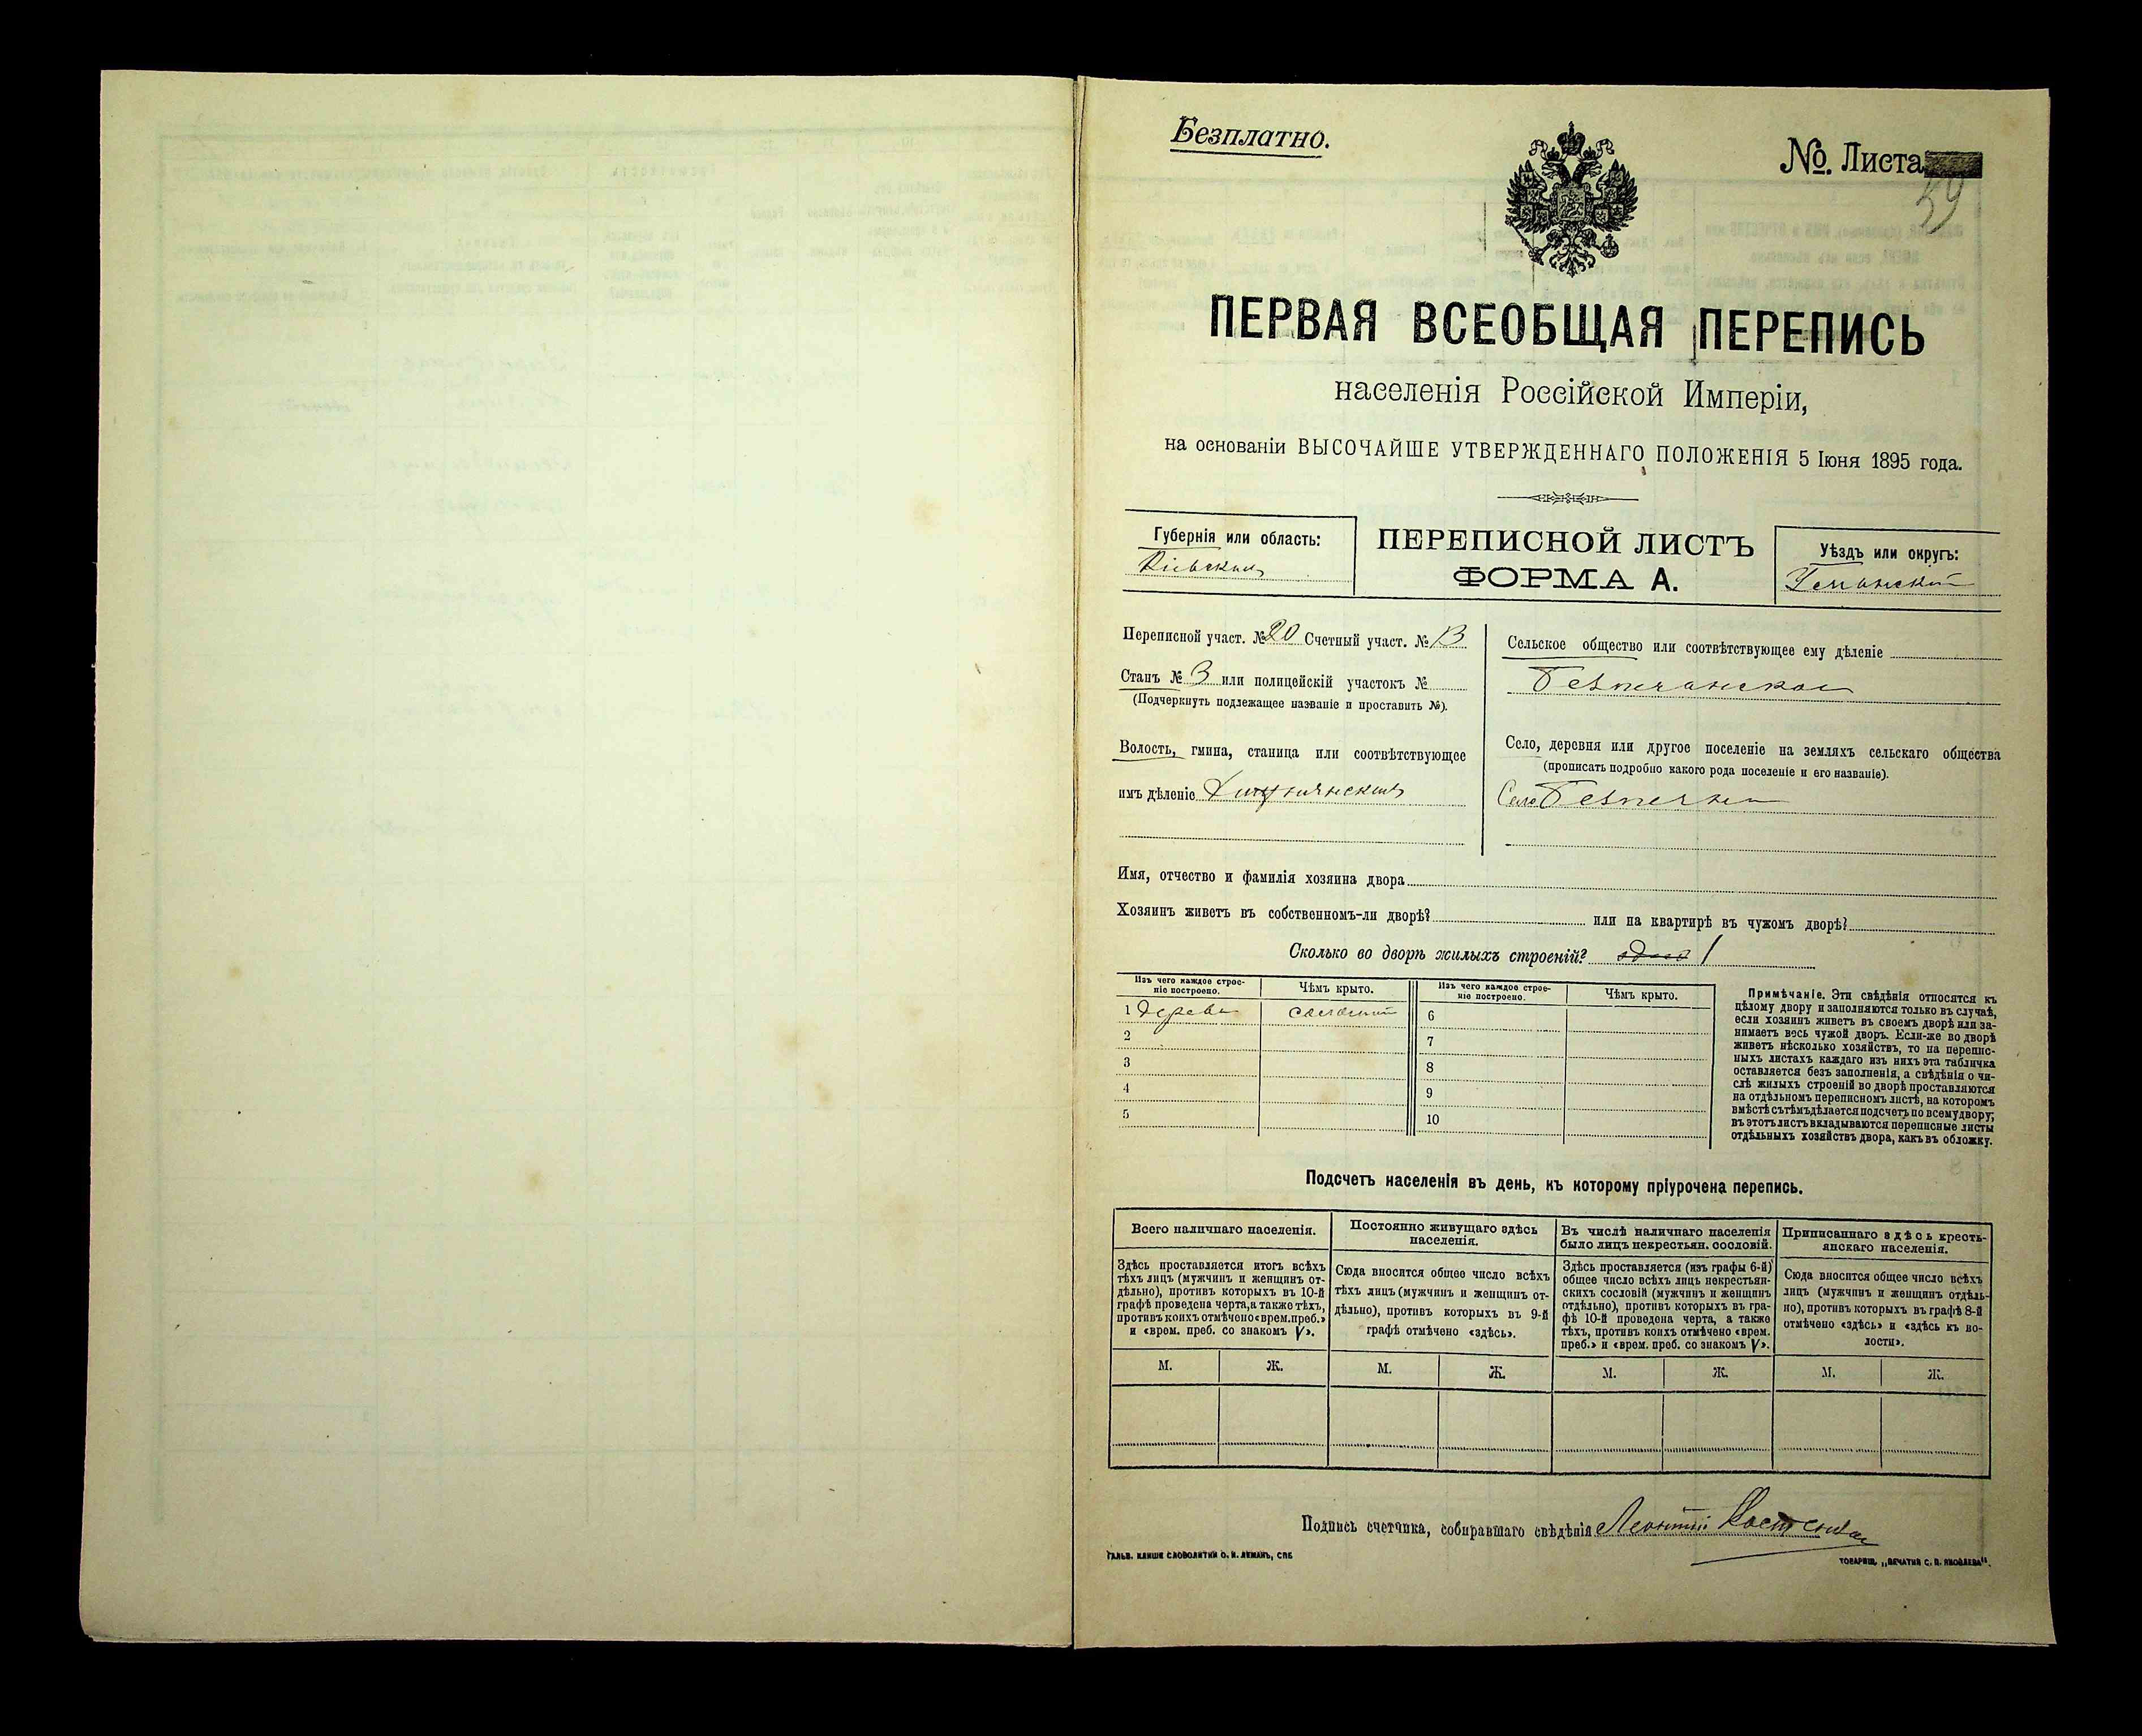 Безплатно.
№. Листа
59
ПЕРВАЯ ВСЕОБЩАЯ ПЕРЕПИСЬ
населенія Россійской Имперіи,
на основаніи ВЫСОЧАЙШЕ УТВЕРЖДЕННАГО ПОЛОЖЕНІЯ 5 Іюня 1895 года.
Губернія или область:
Кіевская
ПЕРЕПИСНОЙ ЛИСТЪ
ФОРМА А.
Уѣздъ или округъ:
Уманскій
Переписной участ. № 20 Счетный участ. № 13
Станъ № 3 или полицейскій участокъ №
(Подчеркнуть подлежащее названіе и проставить №).
Волость, гмина, станица или соотвѣтствующее
имъ дѣленіе
Сельское общество или соотвѣтствующее ему дѣленіе
Безпечанское
Село, деревня или другое поселеніе на земляхъ сельскаго общества
(прописать подробно какого рода поселеніе и его названіе).
Село Безпечна
Имя, отчество и фамилія хозяина двора
Хозяинъ живетъ въ собственномъ-ли дворѣ? или на квартирѣ въ чужомъ дворѣ?
Сколько во дворѣ жилыхъ строеній? 1
Изъ чего каждое строе-
ніе построено.
Чѣмъ крыто.
Изъ чего каждое строе-
ніе построено.
Чѣмъ крыто.
1 дерева соломой
2
3
4
5
6
7
8
9
10
Примѣчаніе. Эти свѣдѣнія относятся къ
цѣлому двору и заполняются только въ случаѣ,
если хозяинъ живетъ въ своемъ дворѣ или за-
нимаетъ весь чужой дворъ. Если-же во дворѣ
живетъ нѣсколько хозяйствъ, то на перепис-
ныхъ листахъ каждаго изъ нихъ эта табличка
оставляется безъ заполненія, а свѣдѣнія о чи-
слѣ жилыхъ строеній во дворѣ проставляются
на отдѣльномъ переписномъ листѣ, на которомъ
вмѣстѣ съ тѣмъ дѣлается подсчетъ по всему двору;
въ этотъ листъ вкладываются переписные листы
отдѣльныхъ хозяйствъ двора, какъ въ обложку.
Подсчетъ населенія въ день, къ которому пріурочена перепись.
Всего наличнаго населенія.
Здѣсь проставляется итогъ всѣхъ
тѣхъ лицъ (мужчинъ и женщинъ от-
дѣльно), противъ которыхъ въ 10-й
графѣ проведена черта, а также тѣхъ,
противъ коихъ отмѣчено «врем. преб.»
и «врем. преб. со знакомъ V».
Постоянно живущаго здѣсь
населенія.
Сюда вносится общее число всѣхъ
тѣхъ лицъ (мужчинъ и женщинъ от-
дѣльно), противъ которыхъ въ 9-й
графѣ отмѣчено «здѣсь».
Въ числѣ наличнаго населенія
было лицъ некрестьян. сословій.
Здѣсь проставляется (изъ графы 6-й)
общее число всѣхъ лицъ некрестьян-
скихъ сословій (мужчинъ и женщинъ
отдѣльно), противъ которыхъ въ гра-
фѣ 10-й проведена черта, а также
тѣхъ, противъ коихъ отмѣчено «врем.
преб.» и «врем. преб. со знакомъ V».
Приписаннаго здѣсь кресть-
янскаго населенія.
Сюда вносится общее число всѣхъ
лицъ (мужчинъ и женщинъ отдѣль-
но), противъ которыхъ въ графѣ 8-й
отмѣчено «здѣсь» и «здѣсь къ во-
лости».
М. Ж. М. Ж. М. Ж. М. Ж.
Подпись счетчика, собиравшаго свѣдѣнія Леонтій
ГАЛЬВ. КЛИШЕ СЛОВОЛИТНИ О. И. ЛЕМАНЪ, СПБ
ТОВАРИЩ. „ПЕЧАТНЯ С. П. ЯКОВЛЕВА“.